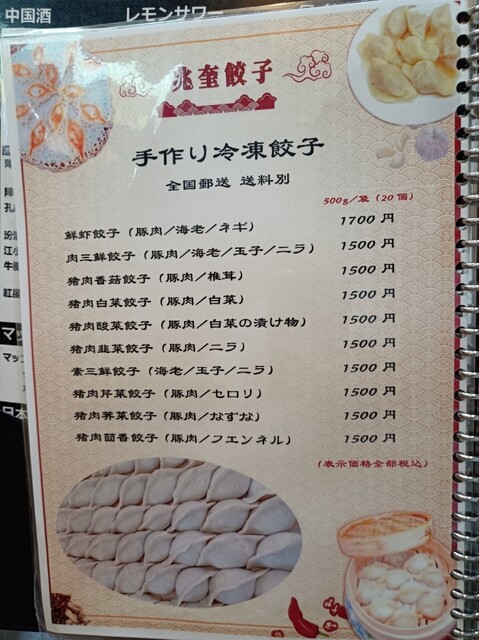 中国酒
レモンサワー
兆奎餃子
手作り冷凍餃子
全国郵送 送料別
500g/袋(20個)
鮮虾餃子(豚肉/海老/ネギ) 1700 円
肉三鮮餃子(豚肉/海老/玉子/ニラ) 1500 円
猪肉香菇餃子(豚肉/椎茸) 1500 円
猪肉白菜餃子(豚肉/白菜) 1500 円
猪肉酸菜餃子(豚肉/白菜の漬け物) 1500 円
猪肉韮菜餃子(豚肉/ニラ) 1500 円
素三鮮餃子(海老/玉子/ニラ) 1500 円
猪肉芹菜餃子(豚肉/セロリ) 1500 円
猪肉荠菜餃子(豚肉/なずな) 1500 円
猪肉茴香餃子(豚肉/フエンネル) 1500 円
(表示価格全部税込)